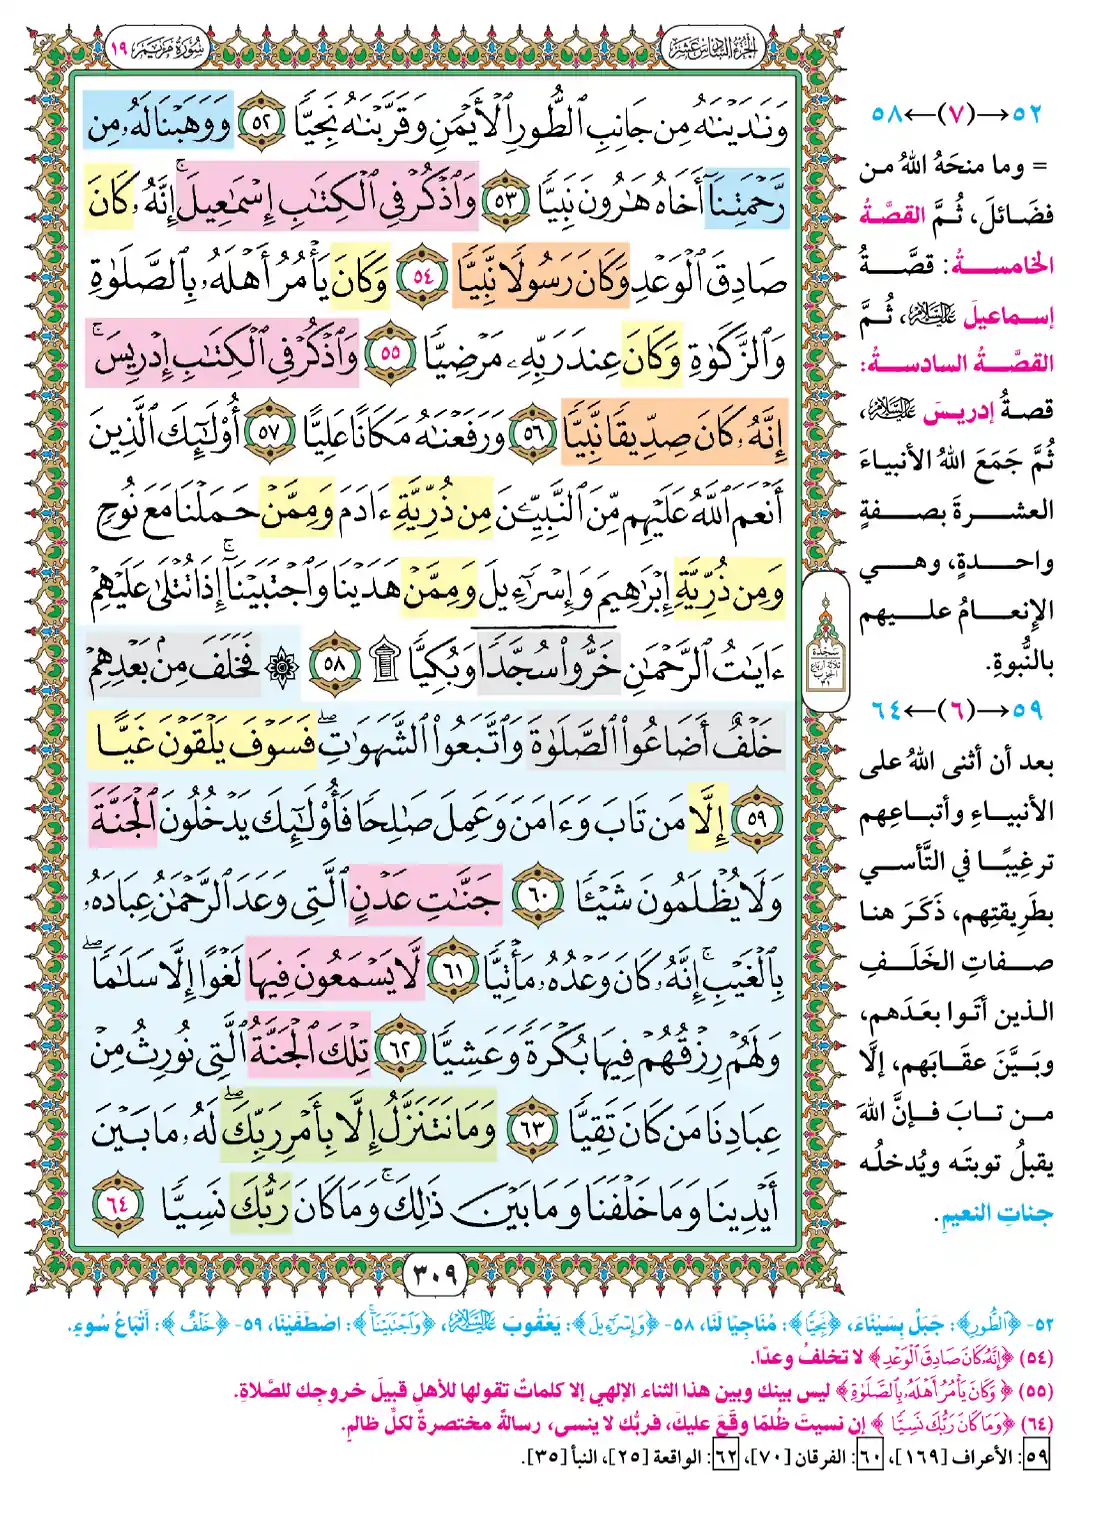 الجزء السادس عشر
سورة مريم ١٩
وَنَٰدَيْنَٰهُ مِن جَانِبِ ٱلطُّورِ ٱلْأَيْمَنِ وَقَرَّبْنَٰهُ نَجِيًّا ٥٢ وَوَهَبْنَا لَهُۥ مِن
رَّحْمَتِنَآ أَخَاهُ هَٰرُونَ نَبِيًّا ٥٣ وَٱذْكُرْ فِى ٱلْكِتَٰبِ إِسْمَٰعِيلَ ۚ إِنَّهُۥ كَانَ
صَادِقَ ٱلْوَعْدِ وَكَانَ رَسُولًا نَّبِيًّا ٥٤ وَكَانَ يَأْمُرُ أَهْلَهُۥ بِٱلصَّلَوٰةِ
وَٱلزَّكَوٰةِ وَكَانَ عِندَ رَبِّهِۦ مَرْضِيًّا ٥٥ وَٱذْكُرْ فِى ٱلْكِتَٰبِ إِدْرِيسَ ۚ
إِنَّهُۥ كَانَ صِدِّيقًا نَّبِيًّا ٥٦ وَرَفَعْنَٰهُ مَكَانًا عَلِيًّا ٥٧ أُو۟لَٰٓئِكَ ٱلَّذِينَ
أَنْعَمَ ٱللَّهُ عَلَيْهِم مِّنَ ٱلنَّبِيِّـۧنَ مِن ذُرِّيَّةِ ءَادَمَ وَمِمَّنْ حَمَلْنَا مَعَ نُوحٍ
وَمِن ذُرِّيَّةِ إِبْرَٰهِيمَ وَإِسْرَٰٓءِيلَ وَمِمَّنْ هَدَيْنَا وَٱجْتَبَيْنَآ ۚ إِذَا تُتْلَىٰ عَلَيْهِمْ
ءَايَٰتُ ٱلرَّحْمَٰنِ خَرُّوا۟ سُجَّدًا وَبُكِيًّا ۩ ٥٨ ۞ فَخَلَفَ مِنۢ بَعْدِهِمْ
خَلْفٌ أَضَاعُوا۟ ٱلصَّلَوٰةَ وَٱتَّبَعُوا۟ ٱلشَّهَوَٰتِ ۖ فَسَوْفَ يَلْقَوْنَ غَيًّا
٥٩ إِلَّا مَن تَابَ وَءَامَنَ وَعَمِلَ صَٰلِحًا فَأُو۟لَٰٓئِكَ يَدْخُلُونَ ٱلْجَنَّةَ
وَلَا يُظْلَمُونَ شَيْـًٔا ٦٠ جَنَّٰتِ عَدْنٍ ٱلَّتِى وَعَدَ ٱلرَّحْمَٰنُ عِبَادَهُۥ
بِٱلْغَيْبِ ۚ إِنَّهُۥ كَانَ وَعْدُهُۥ مَأْتِيًّا ٦١ لَّا يَسْمَعُونَ فِيهَا لَغْوًا إِلَّا سَلَٰمًا ۖ
وَلَهُمْ رِزْقُهُمْ فِيهَا بُكْرَةً وَعَشِيًّا ٦٢ تِلْكَ ٱلْجَنَّةُ ٱلَّتِى نُورِثُ مِنْ
عِبَادِنَا مَن كَانَ تَقِيًّا ٦٣ وَمَا نَتَنَزَّلُ إِلَّا بِأَمْرِ رَبِّكَ ۖ لَهُۥ مَا بَيْنَ
أَيْدِينَا وَمَا خَلْفَنَا وَمَا بَيْنَ ذَٰلِكَ ۚ وَمَا كَانَ رَبُّكَ نَسِيًّا ٦٤
٣٠٩
سجدة
ثلاثة أرباع
الحزب
٣١
٥٢→(٧)←٥٨
= وما منحَهُ اللهُ من
فضَائلَ، ثُمَّ القصَّةُ
الخامسةُ: قصَّةُ
إسماعيلَ عليه السلام، ثُمَّ
القصَّةُ السادسةُ:
قصةُ إدريسَ عليه السلام،
ثُمَّ جَمَعَ اللهُ الأنبياءَ
العشرةَ بصفةٍ
واحدةٍ، وهي
الإنعامُ عليهم
بالنُّبوةِ.
٥٩→(٦)←٦٤
بعد أن أثنى اللهُ على
الأنبياءِ وأتباعِهم
ترغيبًا في التَّأسي
بطَرِيقتِهم، ذَكَرَ هنا
صفاتِ الخَلَفِ
الذين أتَوا بعدَهم،
وبَيَّنَ عقَابَهم، إلَّا
من تابَ فإنَّ اللهَ
يقبلُ توبتَه ويُدخلُه
جناتِ النعيمِ.
٥٢- ﴿ٱلطُّورِ﴾: جَبَلٌ بِسَيْنَاءَ، ﴿نَجِيًّا﴾: مُنَاجِيًا لَنَا، ٥٨- ﴿وَإِسْرَٰٓءِيلَ﴾: يَعْقُوبَ عليه السلام، ﴿وَٱجْتَبَيْنَآ ۚ﴾: اصْطَفَيْنَا، ٥٩- ﴿خَلْفٌ﴾: أَتْبَاعُ سُوءٍ.
(٥٤) ﴿إِنَّهُۥ كَانَ صَادِقَ ٱلْوَعْدِ﴾ لا تخلفُ وعدًا.
(٥٥) ﴿وَكَانَ يَأْمُرُ أَهْلَهُۥ بِٱلصَّلَوٰةِ﴾ ليس بينك وبين هذا الثناء الإلهي إلا كلماتٌ تقولها للأهلِ قبيلَ خروجِك للصَّلاةِ.
(٦٤) ﴿وَمَا كَانَ رَبُّكَ نَسِيًّا﴾ إن نسيتَ ظُلمًا وقَعَ عليكَ، فربُّك لا ينسى، رسالةٌ مختصرةٌ لكلِّ ظالمٍ.
٥٩: الأعراف [١٦٩]، ٦٠: الفرقان [٧٠]، ٦٢: الواقعة [٢٥]، النبأ [٣٥].